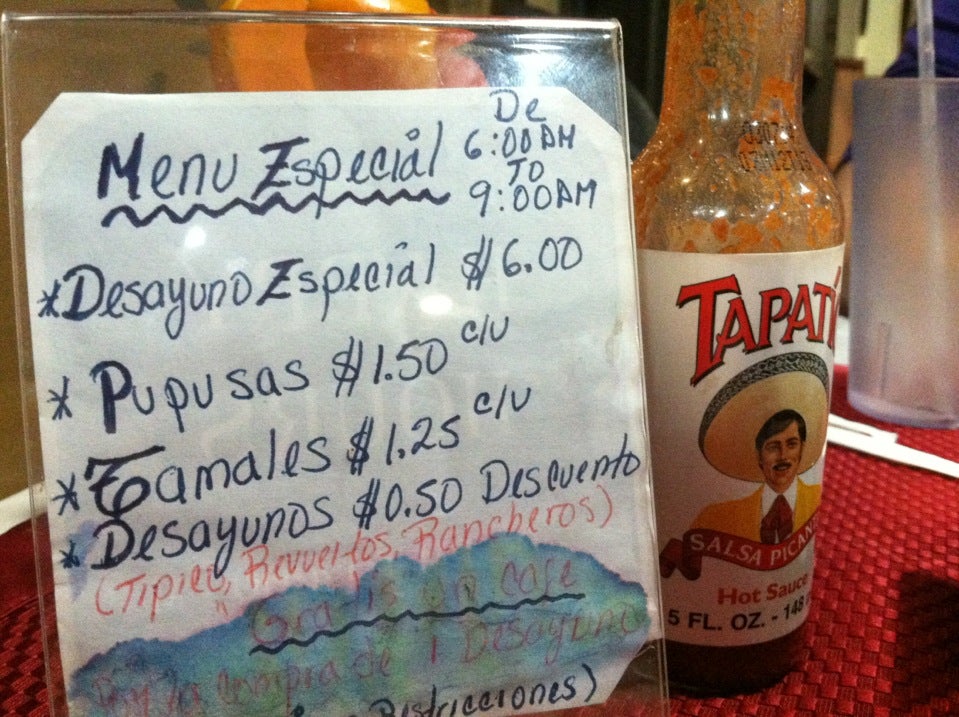 Menu Especial
De
6:00 AM
TO
9:00 AM
* Desayuno Especial $6.00
* Pupusas $1.50 c/u
* Tamales $1.25 c/u
* Desayunos $0.50 Descuento
(Tipico, Revueltos, Rancheros)
Gratis un cafe
Por la compra de 1 Desayuno
Restricciones)
TAPATÍ
SALSA PICAN
Hot Sauce
5 FL. OZ. - 148